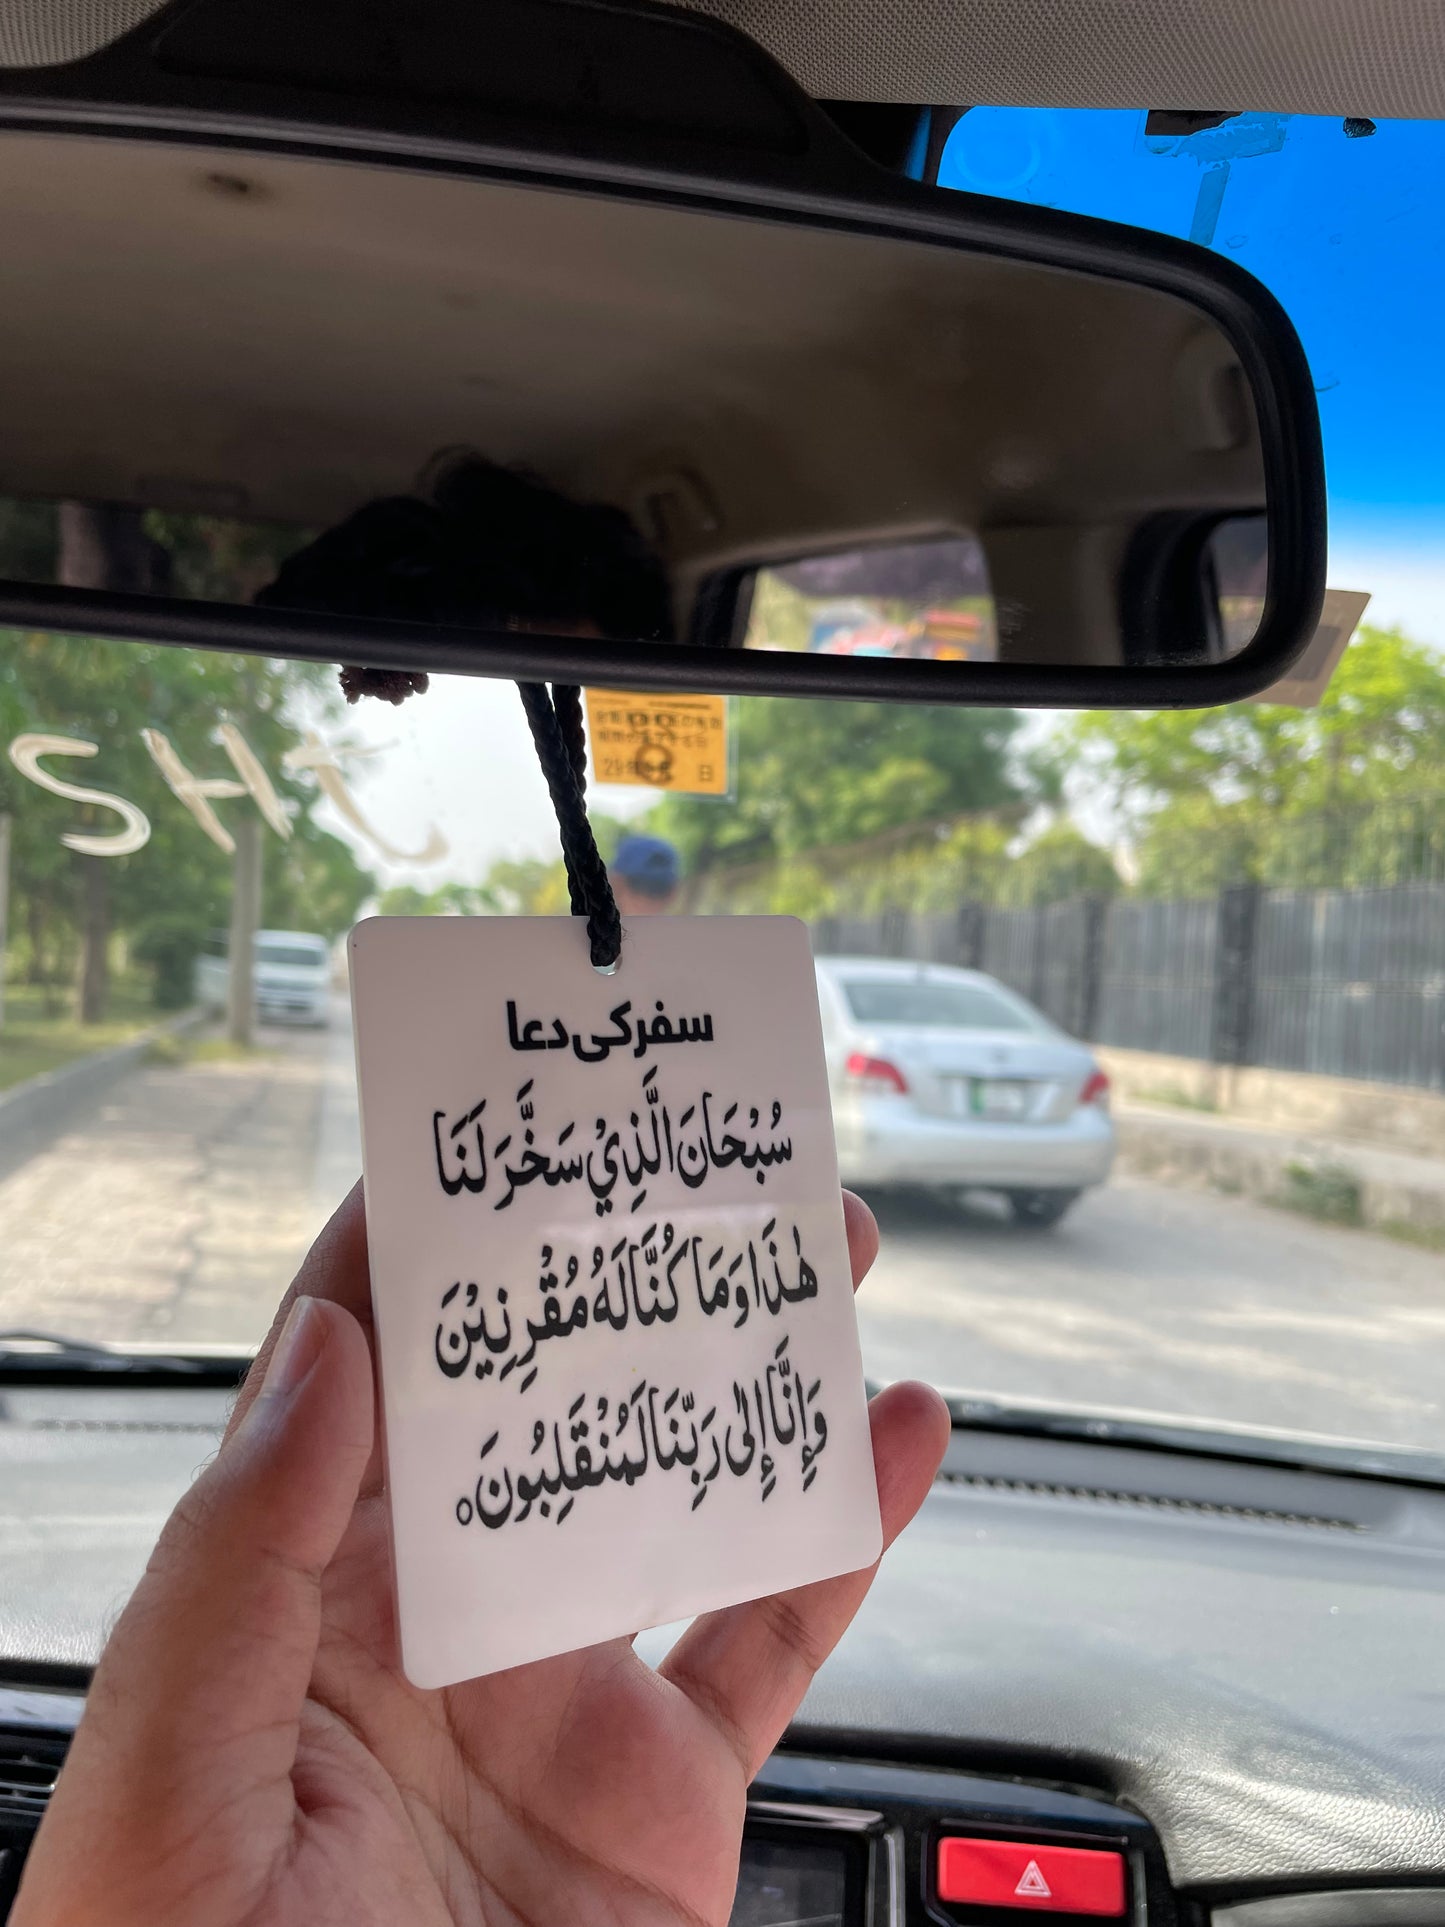 SHJ
سفر کی دعا
سُبْحَانَ الَّذِيْ سَخَّرَ لَنَا
هٰذَا وَمَا كُنَّا لَهُ مُقْرِنِيْنَ
وَإِنَّا إِلٰى رَبِّنَا لَمُنْقَلِبُونَ ○